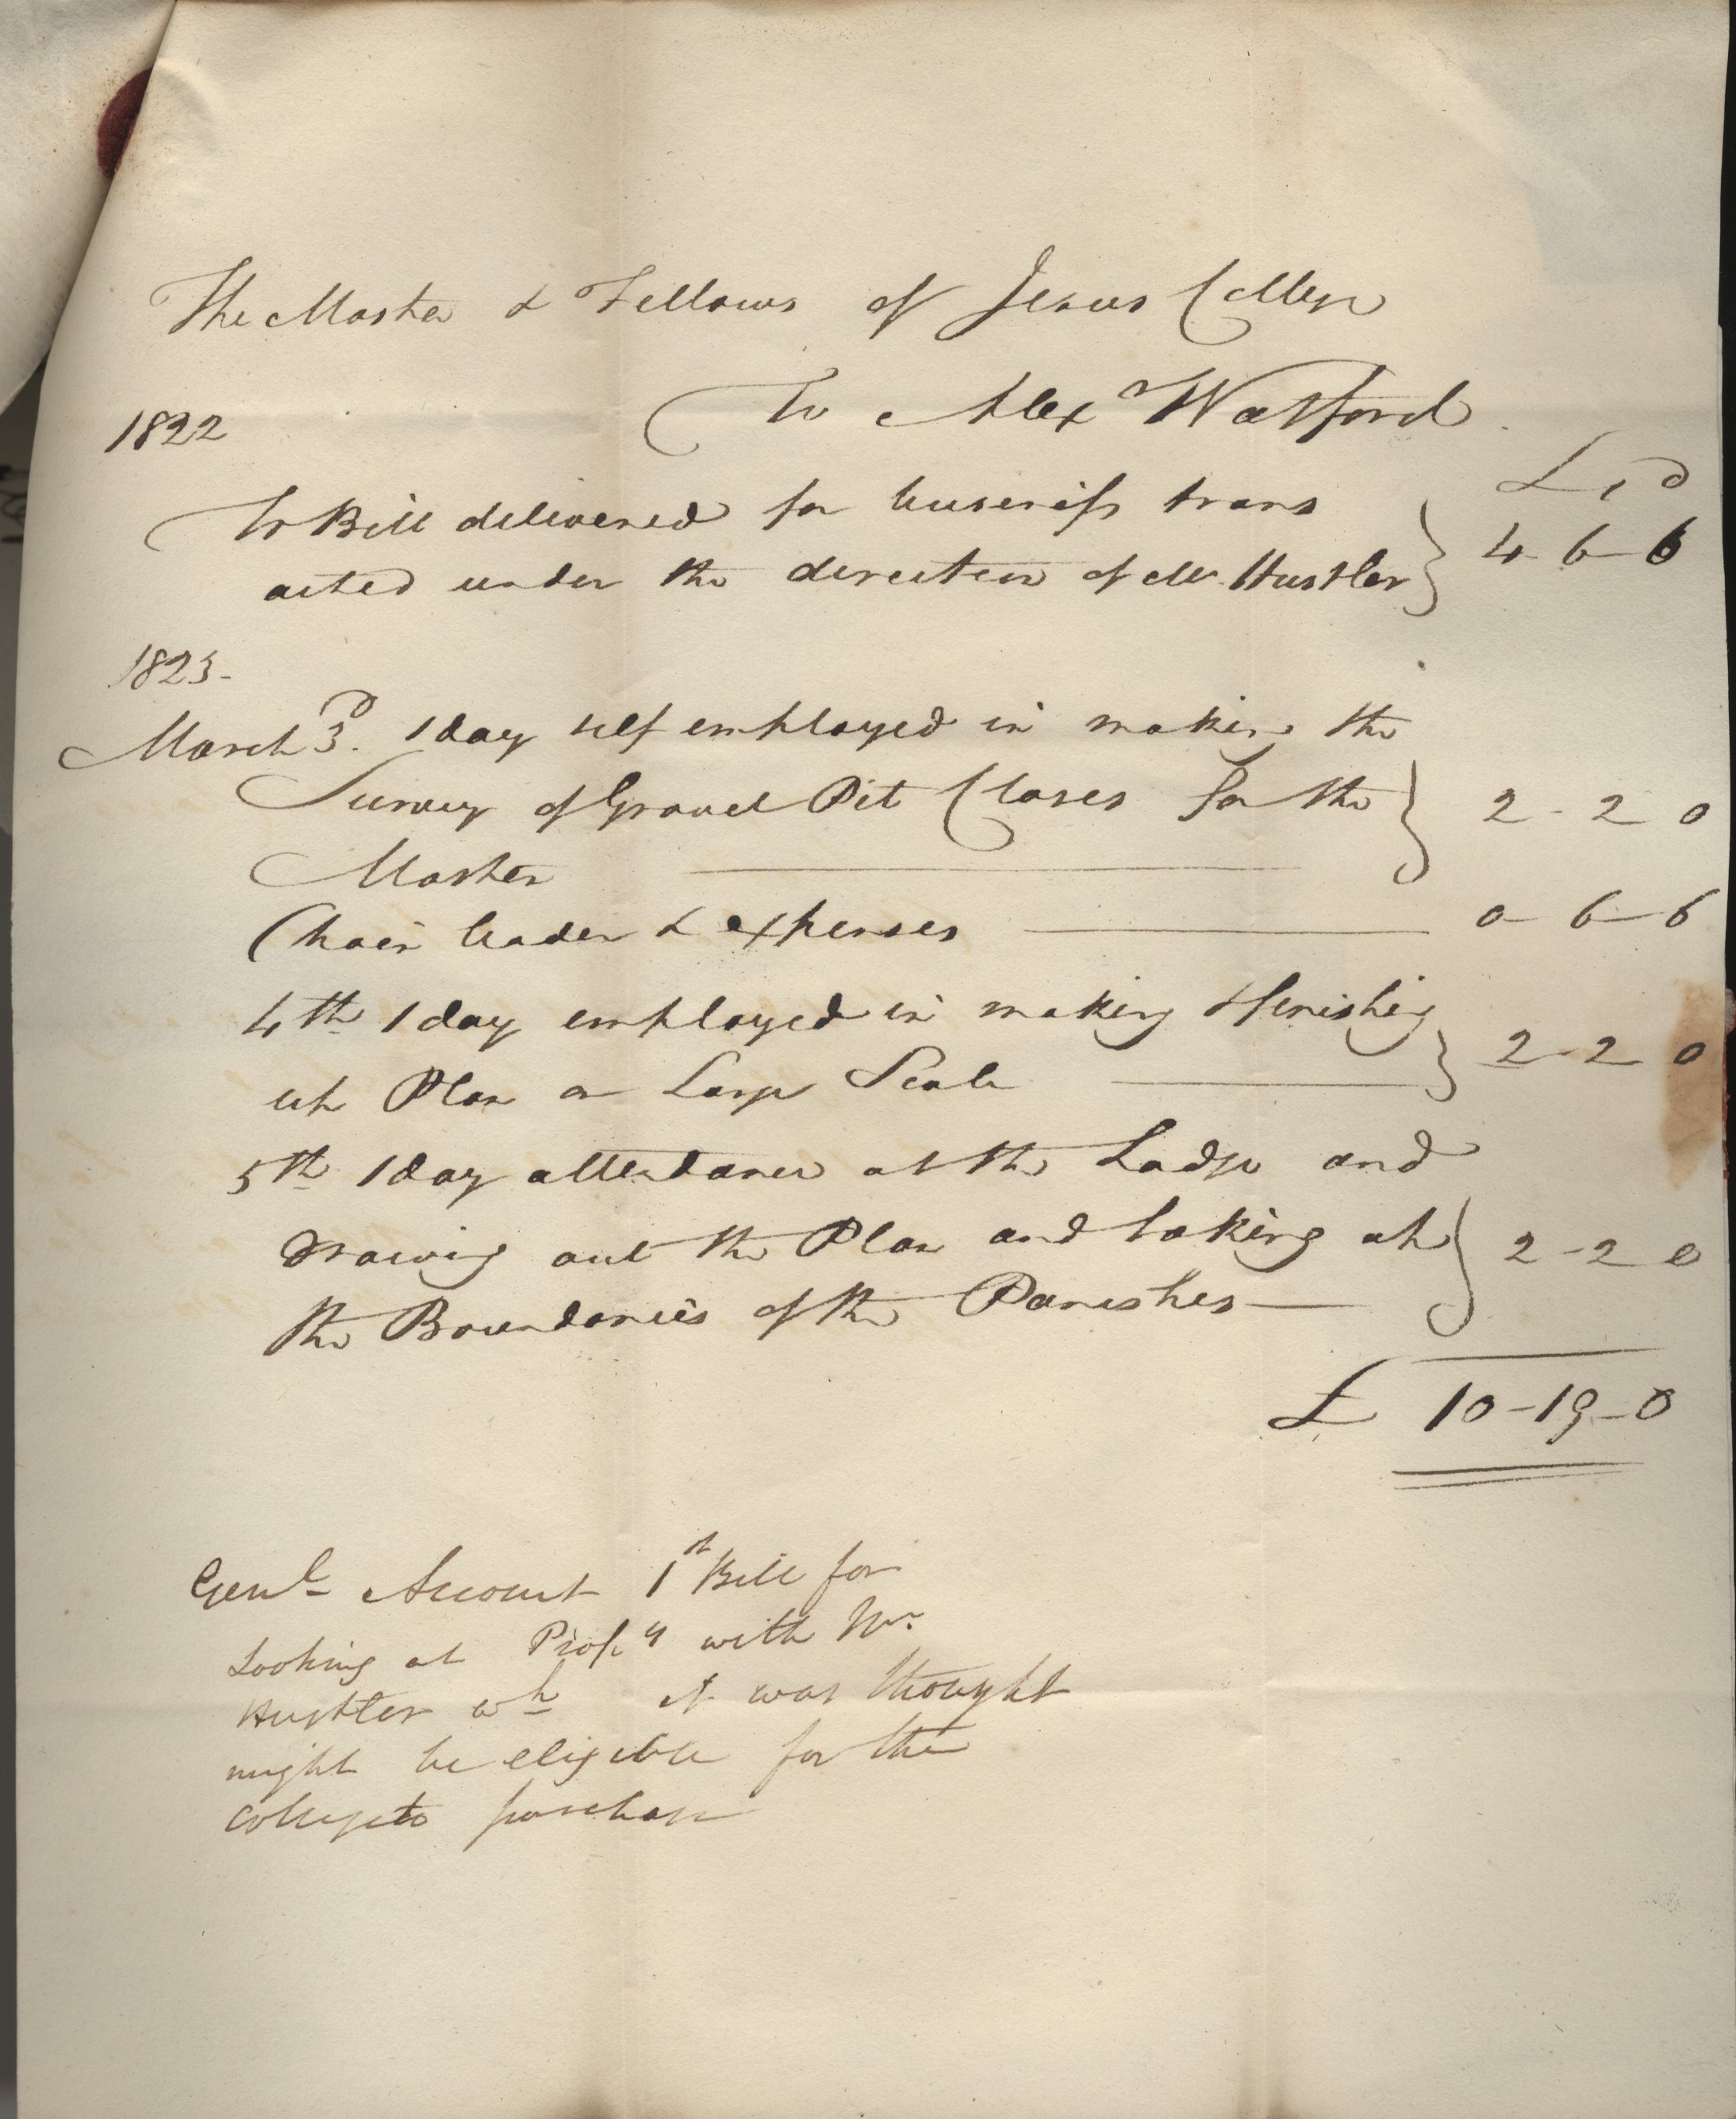 The Master & Fellows of Jesus College
To Alex Watford
1822
£ s d
To Bill delivered for business trans
acted under the direction of Mr. Hustler 4 6 6
1823.
March 3d. 1 day self employed in making the
Survey of Gravel Pit Closes for the 2 - 2 0
Master
Chain leader & expenses 0 6 6
4th 1 day employed in making & finishing
up Plan on Large Scale 2 - 2 0
5th 1 day attendance at the Lodge and
drawing out the Plan and taking up 2 - 2 0
the Boundaries of the Parishes
£ 10 - 19 - 0
Genl Account 1st Bill for
Looking at Propy with Mr.
Hustler wh it was thought
might be eligible for the
College to purchase